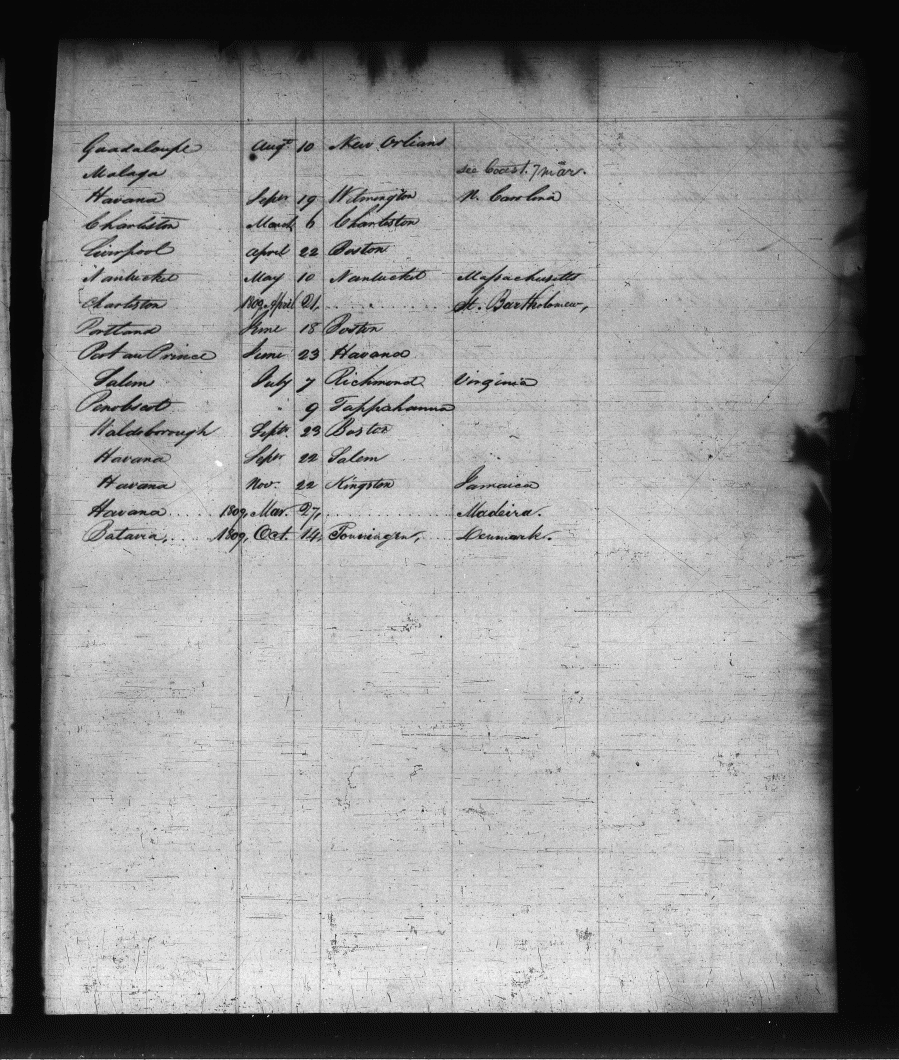 Guadaloupe Augt 10 New Orlians
Malaga see
Havana Septr 19 Wilmington N. Carolina
Charliston March 6 Charliston
Liverpool April 22 Boston
Nantucket May 10 Nantucket Massachusetts
Charliston 1809 April 21, . . . . . St. Bartholomew,
Portland June 18 Boston
Port au Prince June 23 Havana
Salem July 7 Richmond Virginia
Penobscot " 9 Tappahanna
Waldoborough Septr. 23 Boston
Havana Septr 22 Salem
Havana Nov. 22 Kingston Jamaica
Havana . . . . 1809, Mar. 27, . . . . . . . . Madeira.
Batavia, . . . 1809, Oct. 14, Tonningen, . . . Denmark.